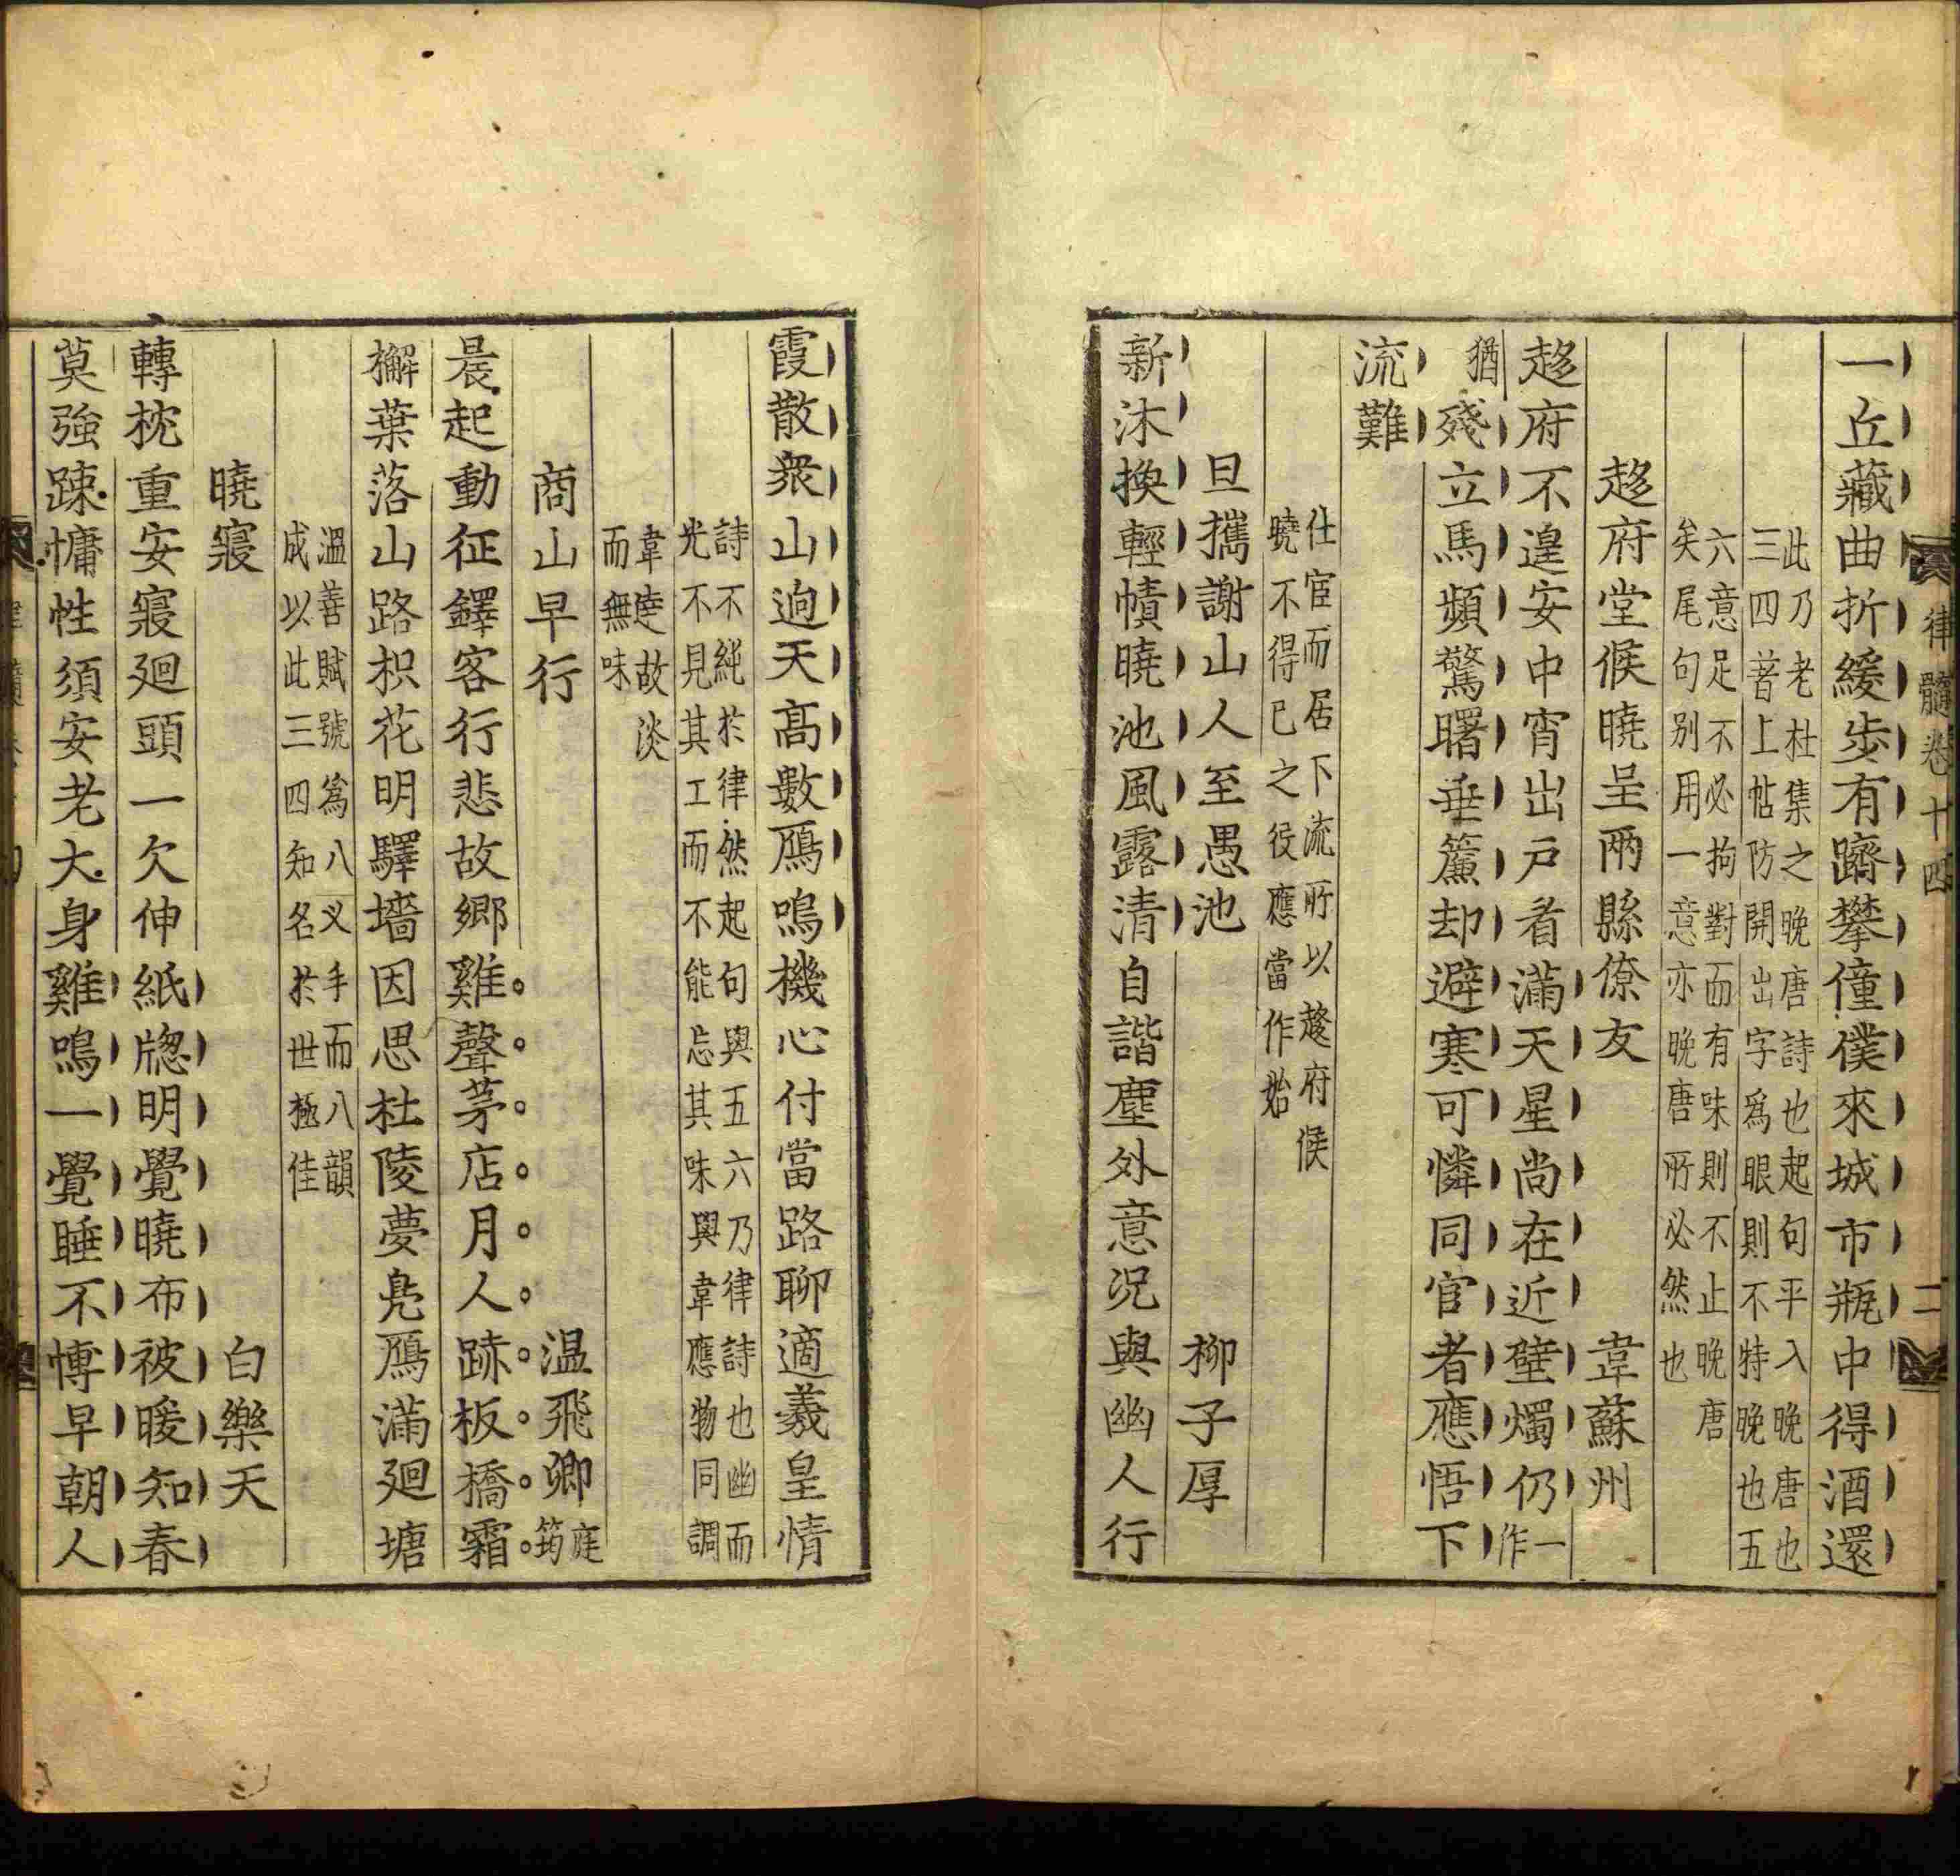 律髓卷十四 二
一丘藏曲折緩步有躋攀僮僕來城市瓶中得酒還
此乃老杜集之晚唐詩也起句平入晚唐也
三四著上帖防開出字爲眼則不特晚也五
六意足不必拘對而有味則不止晚唐
矣尾句别用一意亦晚唐所必然也
趍府堂候曉呈兩縣僚友 韋蘇州
趍府不遑安中宵出戸看滿天星尚在近壁燭仍一作
猶殘立馬頻驚曙垂簾却避寒可憐同官者應悟下
流難
仕宦而居下流所以趍府候
曉不得已之役應當作始
旦攜謝山人至愚池 柳子厚
新沐換輕幘曉池風露清自諧塵外意况與幽人行
霞散衆山逈天髙數鴈鳴機心付當路聊適羲皇情
詩不純於律然起句與五六乃律詩也幽而
光不見其工而不能忘其味與韋應物同調
韋達故淡
而無味
商山早行 温飛卿庭筠
晨起動征鐸客行悲故郷雞聲茅店月人跡板橋霜
槲葉落山路枳花明驛墻因思杜陵夢鳧鴈滿廻塘
温善賦號爲八义手而八韻
成以此三四知名於世極佳
曉寢 白樂天
轉枕重安寢廻頭一欠伸紙牕明覺曉布被暖知春
莫強踈慵性須安老大身雞鳴一覺睡不博早朝人